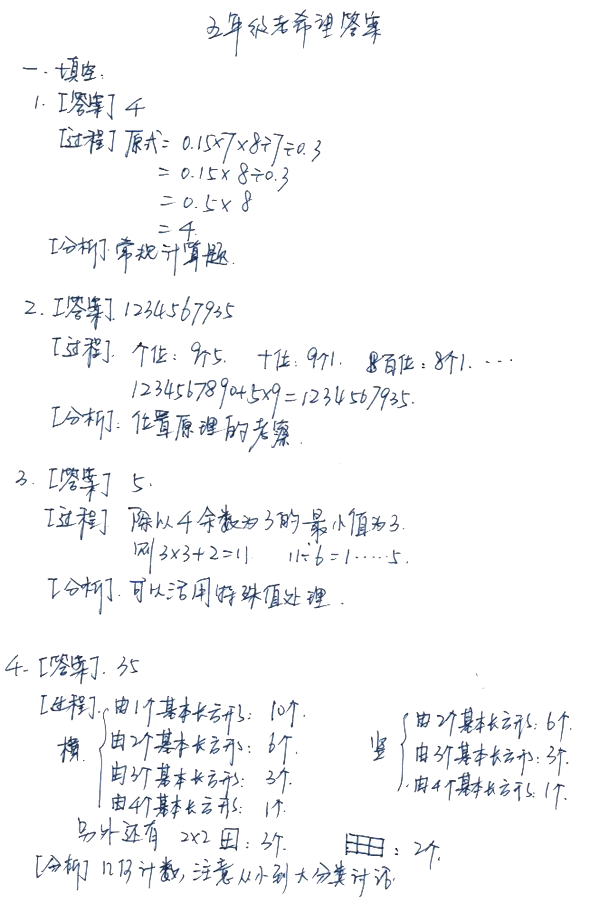 五年级考希望答案
一.填空:
1.[答案] 4
[过程] 原式=0.15×7×8÷7÷0.3
=0.15×8÷0.3
=0.5×8
=4.
[分析].常规计算题.
2.[答案].1234567935
[过程]. 个位:9个5. 十位:9个1. 百位:8个1.…
1234567890+5×9=1234567935.
[分析]:位置原理的考察.
3.[答案] 5.
[过程] 除以4余数为3的最小值为3.
则3×3+2=11 11÷6=1……5.
[分析].可以活用特殊值处理.
4.[答案].35
[过程].由1个基本长方形:10个.
横 由2个基本长方形:6个.
由3个基本长方形:3个.
由4个基本长方形:1个.
竖 由2个基本长方形:6个.
由3个基本长方形:3个.
由4个基本长方形:1个.
另外还有 2×2 田:3个. :2个.
[分析] 几何计数,注意从小到大分类讨论.